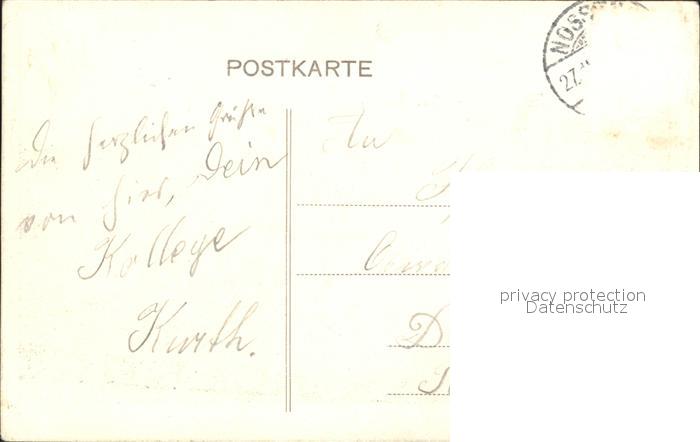 POSTKARTE
NOSS
27.
Die herzlichen Grüße
von hier, Dein
Kollege
Kurth.
An
D
privacy protection
Datenschutz